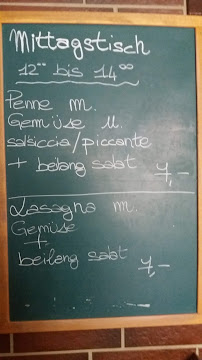 Mittagstisch
12⁰⁰ bis 14⁰⁰
Penne m.
Gemüse u.
salsiccia/piccante
+ beilang salat 7,-
Lasagna m.
Gemüse
+
beilang salat 7,-